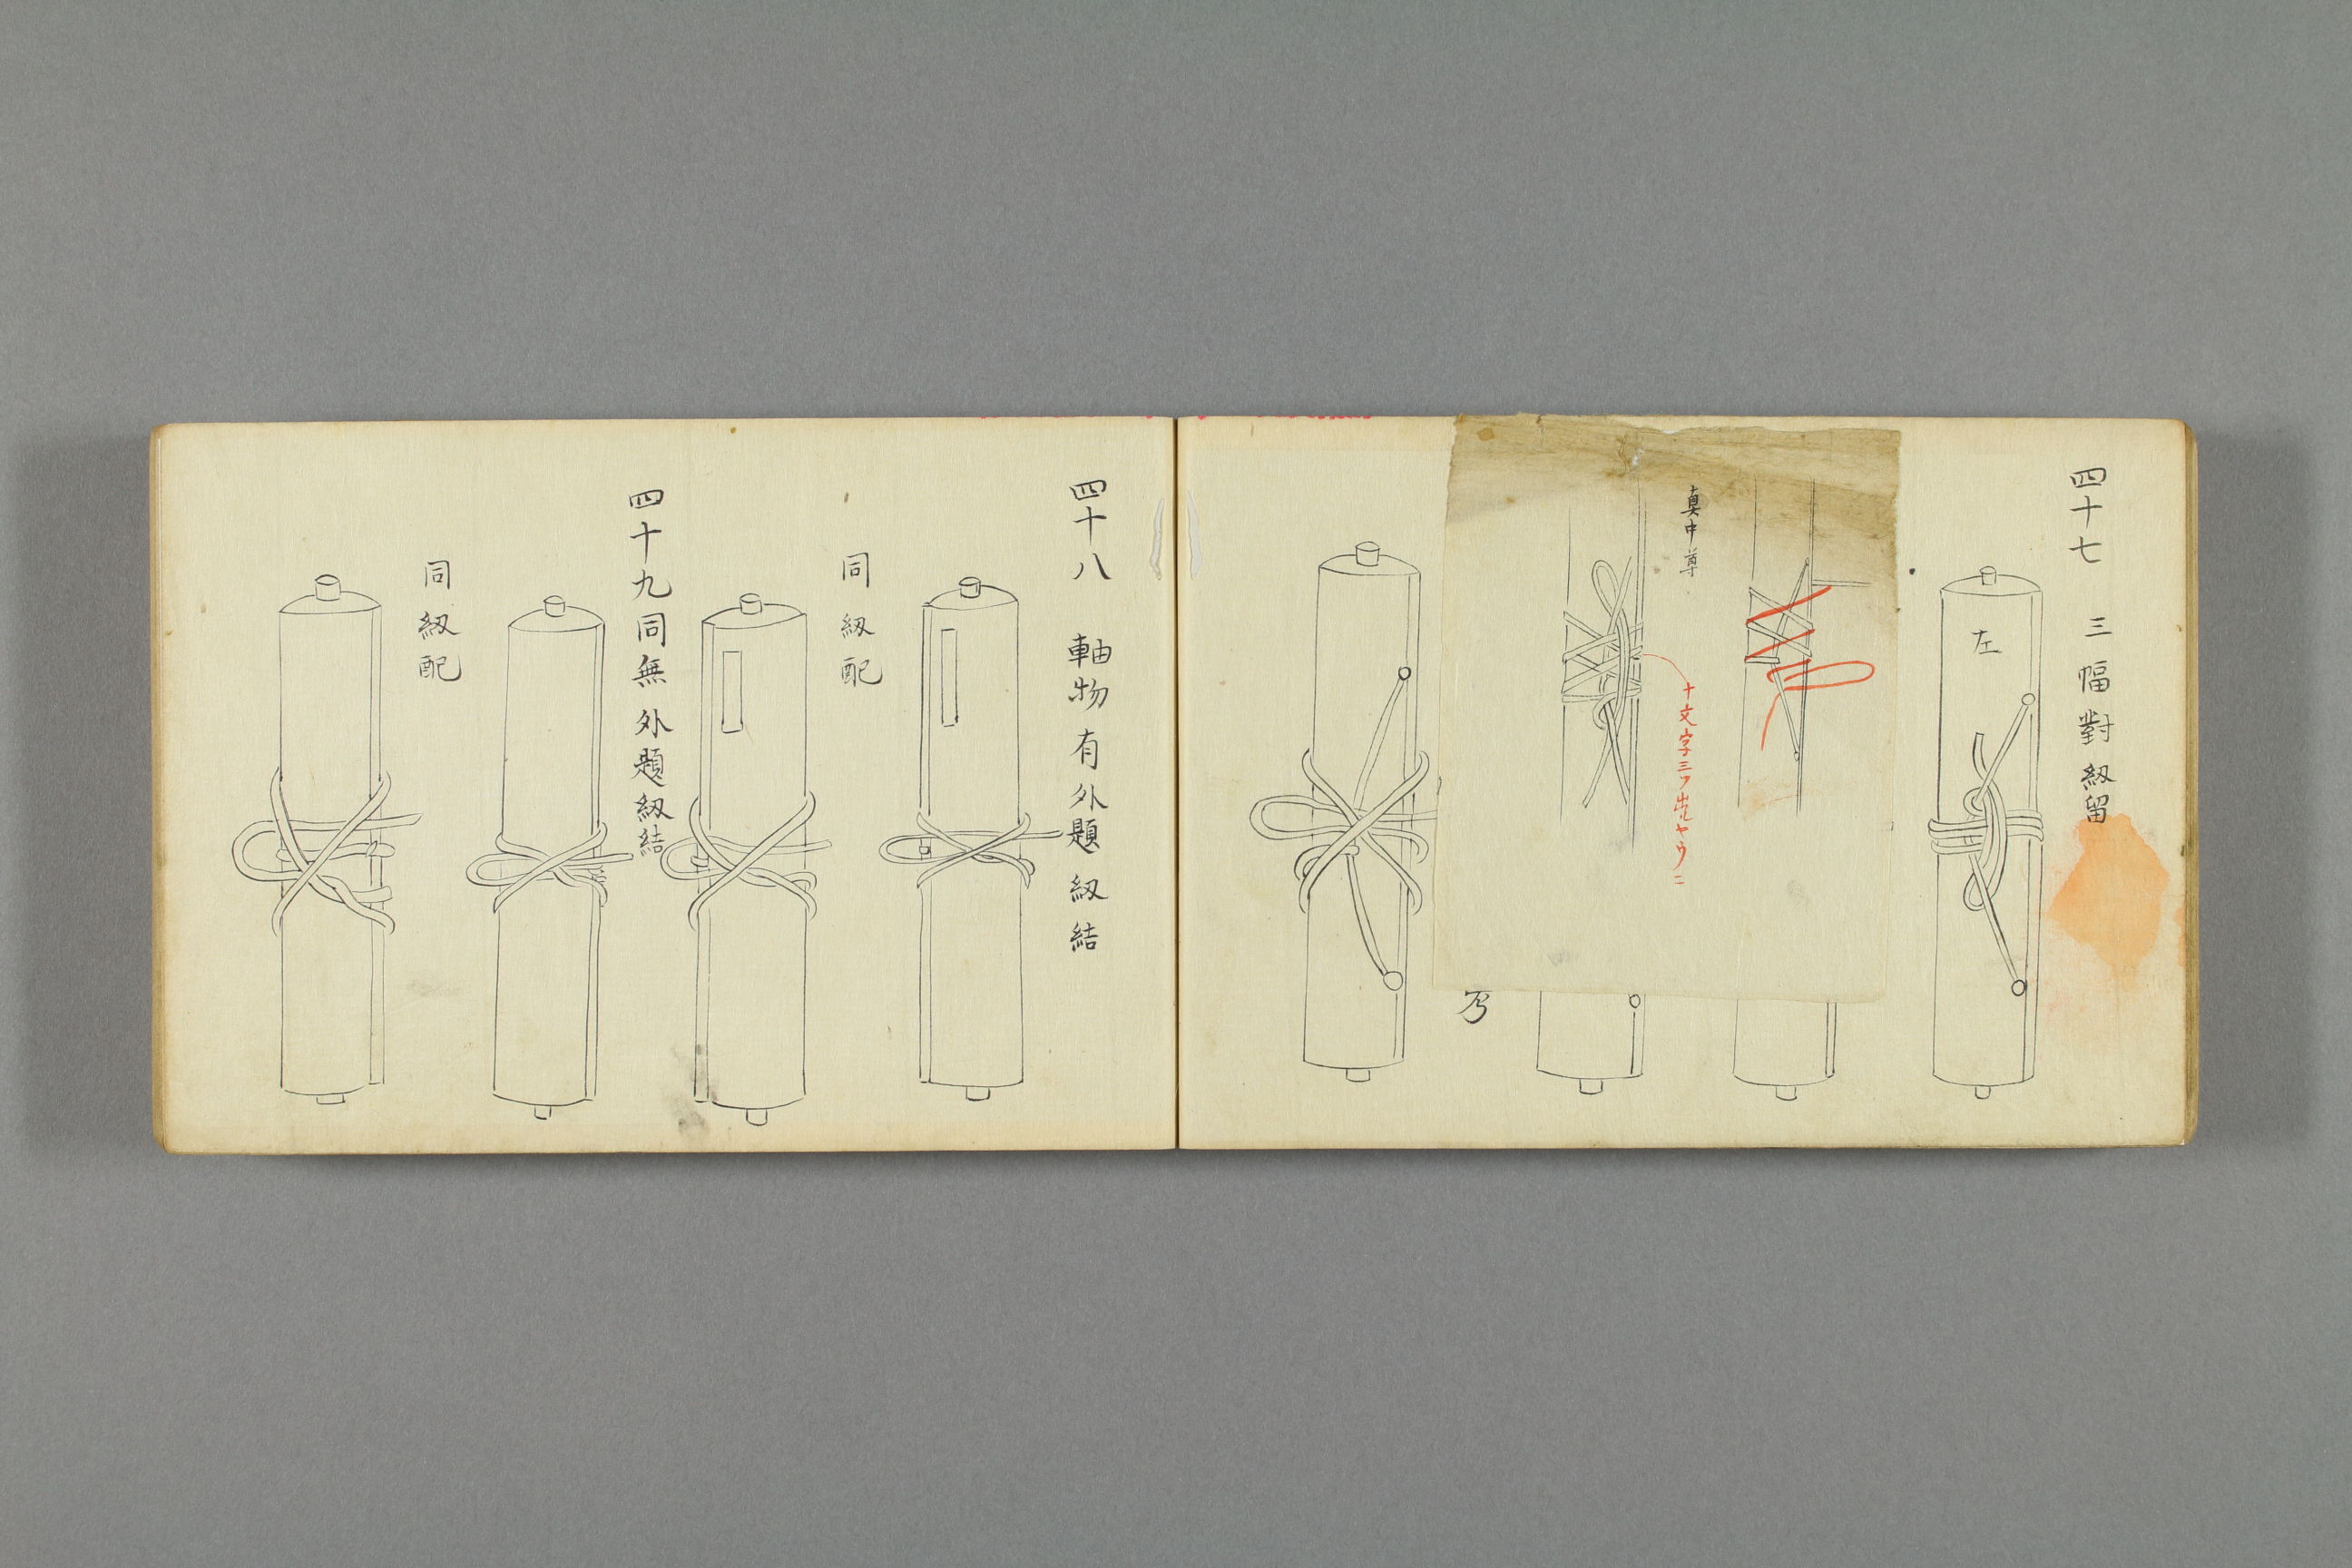 四十七 三幅對紉留
左
真中草
十文字三ツ出ルヤウニ
乃
四十八 軸物有外題紉結
同紉配
四十九同無外題紉結
同紉配